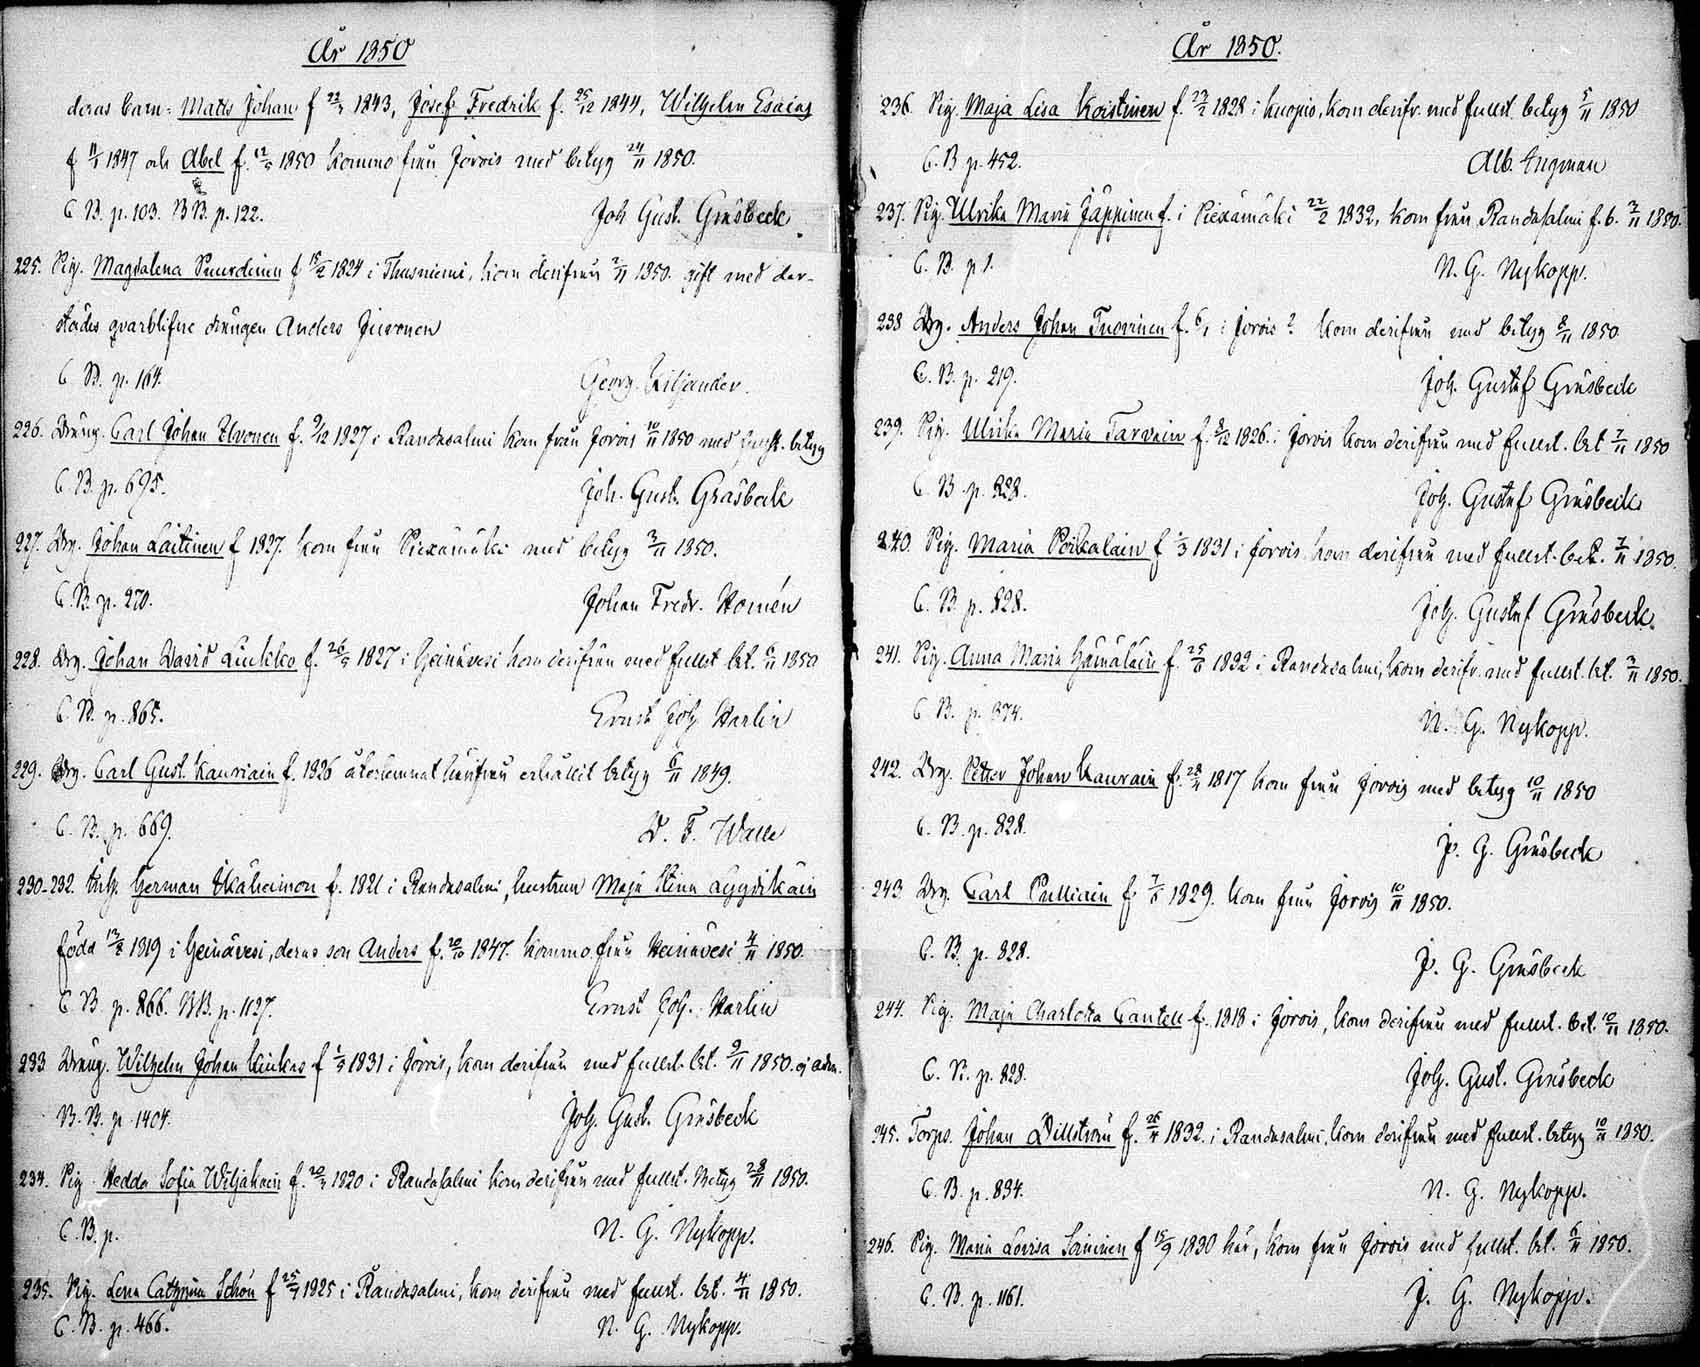 År 1850
deras barn: Matts Johan f 22/4 1843, Josef Fredrik f. 25/12 1844, Wilhelm Esaias
f 11/1 1847 och Abel f. 12/5 1850 kommo från Jorois med betyg 24/11 1850.
C. B. p. 103. BB. p. 122.
Joh Gust. Gråsbeck.
225. Pig. Magdalena f 15/2 1824 i Thusniemi, kom derifrån 2/11 1850. gift med der-
städes qvarblifne drängen Anders Juvonen
C. B. p. 164.
Georg. Kiljander.
226. Dräng. Carl Johan Ilvonen f. 9/12 1827 i Randasalmi kom från Jorois 10/11 1850 med betyg
C. B. p. 695.
Joh. Gust. Gråsbeck
227. Drg. Johan Laitinen f 1827. kom från Piexämäki med betyg 3/11 1850.
C. B. p. 270.
Johan Fredr. Homén
228. Drg. Johan David Liukko f. 26/5 1827 i Heinävesi kom derifrån med fullst bet. 6/11 1850
C. B. p. 865.
Ernst Joh. Harlin
229. Drg. Carl Gust. Kauriain f. 1826 återlemnat härifrån erhållit betyg 6/11 1849.
C. B. p. 669.
D. F. Walle
230-232. Herman Ikäheimon f. 1821 i Randasalmi, hustrun Maja Stina Lyydikäin
föda 13/2 1819 i Heinävesi, deras son Anders f. 20/10 1847. kommo från Heinävesi 4/11 1850.
C. B. p. 866. BB. p. 1127.
Ernst Joh. Harlin
233 Dräng. Wilhelm Johan Kiukas f 1/3 1831 i Jorois, kom derifrån med fullst. bet. 9/11 1850. ej adm.
B. B. p. 1404.
Joh. Gust. Gråsbeck
234. Pig. Hedda Sofia Wiljakain f. 20/4 1820 i Randasalmi kom derifrån med fullst. betyg 28/11 1850.
C. B. p.
N. G. Nykopp.
235. Pig. Lena Cathrina Schön f 25/4 1825 i Randasalmi, kom derifrån med fullst. bet. 4/11 1850.
C. B. p. 466.
N. G. Nykopp.
År 1850.
236. Pig. Maja Lisa Koistinen f. 23/2 1828 i Kuopio, kom derifr. med fullst. betyg 5/11 1850
C. B p. 452.
Alb. Ingman
237. Pig. Ulrika Maria Jäppinen f. i Piexämäki 22/2 1832, kom från Randasalmi f. b. 3/11 1850.
C. B. p 1.
N. G. Nykopp.
238 Drg. Anders Johan Tuovinen f. 6/1 i Jorois? kom derifrån med betyg 8/11 1850
C. B. p. 219.
Joh. Gustaf Gråsbeck
239. Pig. Ulrika Maria Tarvain f. 8/12 1826. i Jorois kom derifrån med fullst. bet 7/11 1850
C. B. p. 828.
Joh. Gustaf Gråsbeck
240. Pig. Maria Poikalain f 1/3 1831 i Jorois kom derifrån med fullst. bet. 7/11 1850.
C. B. p. 828.
Joh. Gustaf Gråsbeck.
241. Pig. Anna Maria Hämäläin f. 25/8 1832 i Randasalmi, kom derifr. med fullst. bet. 3/11 1850.
C. B. p. 374.
N. G. Nykopp.
242. Drg. Petter Johan Kaurain f. 28/4 1817 kom från Jorois med betyg 10/11 1850
C. B. p. 828.
J. G. Gråsbeck
243 Drg. Carl Pulliain f 7/5 1829. kom från Jorois 10/11 1850.
C. B. p. 828.
J. G. Gråsbeck
244. Pig. Maja Charlotta Cantell f. 1818 i Jorois, kom derifrån med fullst. bet. 10/11 1850.
C. B. p. 828.
Joh. Gust. Gråsbeck
245. Torps. Johan Dillström f. 26/4 1832. i Randasalmi, kom derifrån med fullst. betyg 10/11 1850.
C. B. p. 834.
N. G. Nykopp.
246. Pig. Maria Lovisa Saininen f 15/9 1830 här, kom från Jorois med fullst. bet. 6/11 1850.
C. B. p. 1161.
J. G. Nykopp.